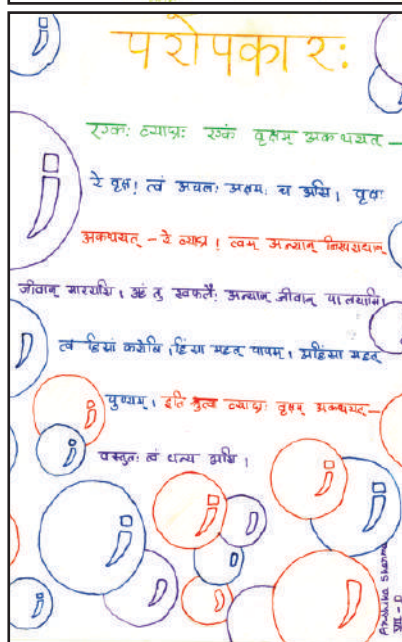 परोपकारः
एकः व्याघ्रः एकं वृक्षम् अकथयत् –
रे वृक्ष! त्वं अचलः अक्षमः च असि। वृक्षः
अकथयत् – रे व्याघ्र! त्वम् अन्यान् निरपराधान्
जीवान् मारयसि। अहं तु स्वफलैः अन्यान् जीवान् पालयामि।
त्वं हिंसां करोषि। हिंसा महत् पापम्। अहिंसा महत्
पुण्यम्। इति श्रुत्वा व्याघ्रः वृक्षम् अकथयत् –
वस्तुतः त्वं धन्य असि।
Anshika Sharma
VII - D